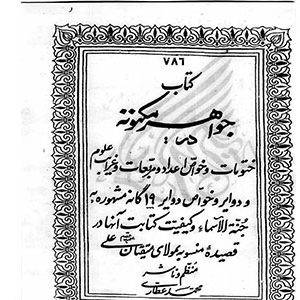 ۷۸۶
کتاب
جواهر مکنونه
در
ختومات و خواص اعداد و مربعات و غیرها علوم
و دوایر و خواص دوایر ۱۹ گانه مشهوره به
جنة الاسماء و کیفیت کتابت آنها در
قصیدهٔ منسوبه بمولای متقیان علی
ناشر
عطاری